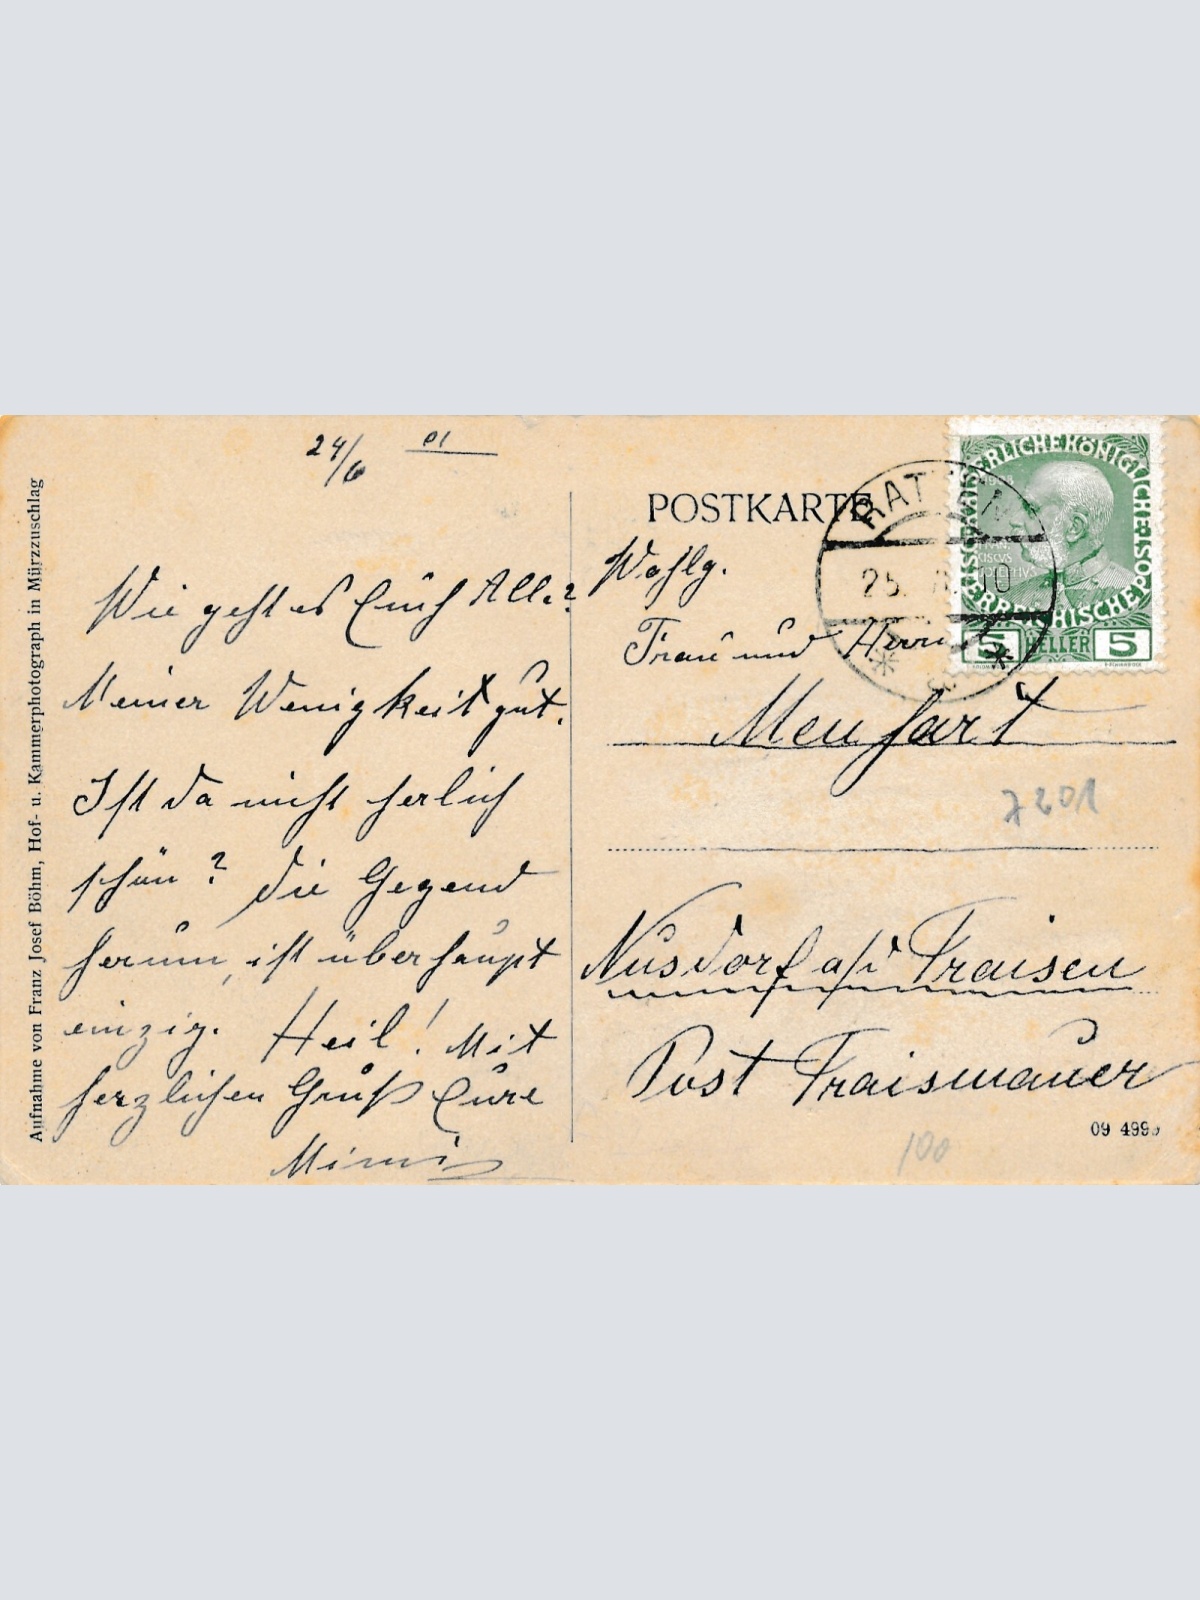 Aufnahme von Franz Josef Böhm, Hof- u. Kammerphotograph in Mürzzuschlag
24/6
Wie geht es Euch Alle?
Meiner Wenigkeit gut.
Ist da nicht herlich
schön? Die Gegend
herum, ist überhaupt
einzig. Heil! Mit
herzlichen Gruß Eure
Mimi
POSTKARTE
Wohlg.
Frau und Herrn
Meuhart
7201
Nusdorf a/d Traisen
Post Traismauer
09 499
100
KAISERLICHE KÖNIGLICHE ÖSTERREICHISCHE POST
5 HELLER 5
25.